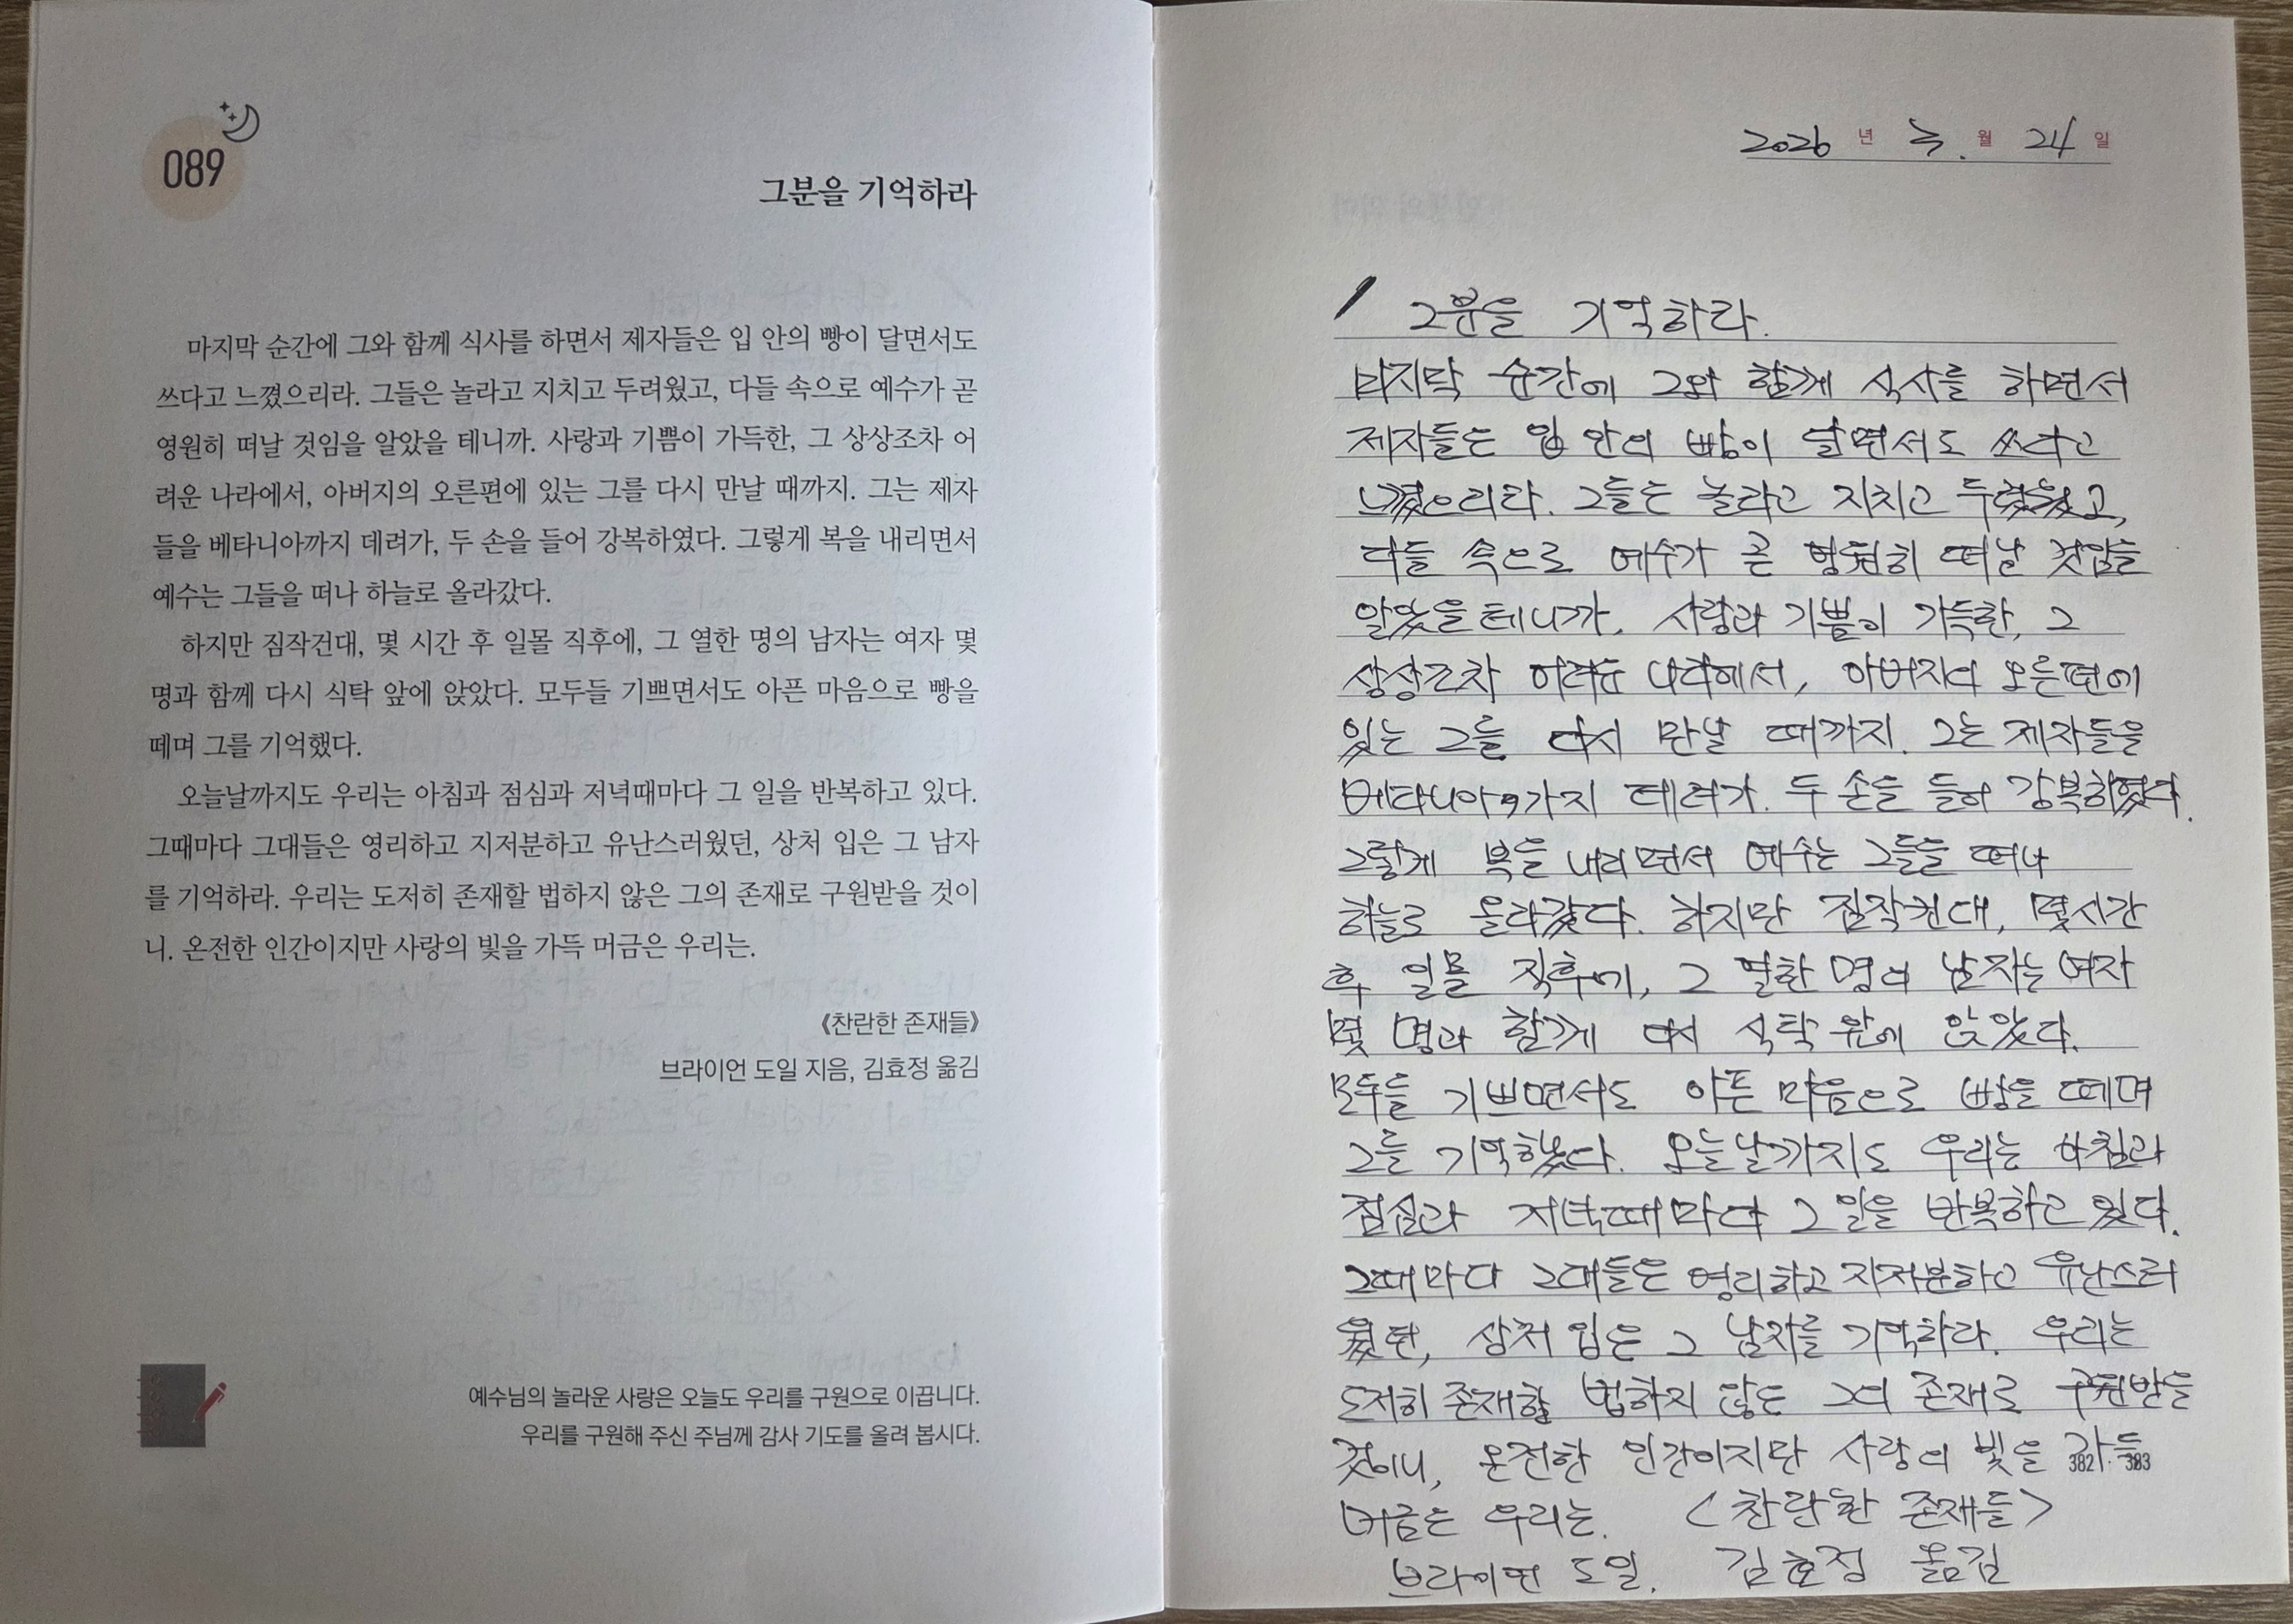 089
그분을 기억하라
마지막 순간에 그와 함께 식사를 하면서 제자들은 입 안의 빵이 달면서도
쓰다고 느꼈으리라. 그들은 놀라고 지치고 두려웠고, 다들 속으로 예수가 곧
영원히 떠날 것임을 알았을 테니까. 사랑과 기쁨이 가득한, 그 상상조차 어
려운 나라에서, 아버지의 오른편에 있는 그를 다시 만날 때까지. 그는 제자
들을 베타니아까지 데려가, 두 손을 들어 강복하였다. 그렇게 복을 내리면서
예수는 그들을 떠나 하늘로 올라갔다.
하지만 짐작건대, 몇 시간 후 일몰 직후에, 그 열한 명의 남자는 여자 몇
명과 함께 다시 식탁 앞에 앉았다. 모두들 기쁘면서도 아픈 마음으로 빵을
떼며 그를 기억했다.
오늘날까지도 우리는 아침과 점심과 저녁때마다 그 일을 반복하고 있다.
그때마다 그대들은 영리하고 지저분하고 유난스러웠던, 상처 입은 그 남자
를 기억하라. 우리는 도저히 존재할 법하지 않은 그의 존재로 구원받을 것이
니. 온전한 인간이지만 사랑의 빛을 가득 머금은 우리는.
《찬란한 존재들》
브라이언 도일 지음, 김효정 옮김
예수님의 놀라운 사랑은 오늘도 우리를 구원으로 이끕니다.
우리를 구원해 주신 주님께 감사 기도를 올려 봅시다.
2026 년 월 24 일
그분을 기억하라.
마지막 순간에 그와 함께 식사를 하면서
제자들은 입 안의 빵이 달면서도 쓰다고
느꼈으리라. 그들은 놀라고 지치고 두려웠고,
다들 속으로 예수가 곧 영원히 떠날 것임을
알았을 테니까. 사랑과 기쁨이 가득한, 그
상상조차 어려운 나라에서, 아버지의 오른편에
있는 그를 다시 만날 때까지. 그는 제자들을
베타니아까지 데려가. 두 손을 들어 강복하였다.
그렇게 복을 내리면서 예수는 그들을 떠나
하늘로 올라갔다. 하지만 짐작컨대, 몇시간
후 일몰 직후에, 그 열한 명의 남자는 여자
몇 명과 함께 다시 식탁 앞에 앉았다.
모두들 기쁘면서도 아픈 마음으로 빵을 떼며
그를 기억했다. 오늘날까지도 우리는 아침과
점심과 저녁때마다 그 일을 반복하고 있다.
그때마다 그대들은 영리하고 지저분하고 유난스러
웠던, 상처 입은 그 남자를 기억하라. 우리는
도저히 존재할 법하지 않은 그의 존재로 구원받을
것이니, 온전한 인간이지만 사랑의 빛을 가득
382 · 383
머금은 우리는. <찬란한 존재들>
브라이언 도일. 김효정 옮김